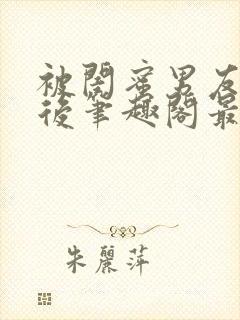 被閨蜜男友
後筆趣閣最
朱麗萍